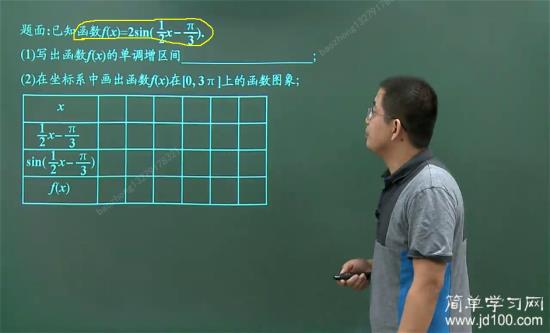 题面:已知函数f(x)=2sin(1/2x-π/3).
(1)写出函数f(x)的单调增区间____________________;
(2)在坐标系中画出函数f(x)在[0,3π]上的函数图象;
x
1/2x-π/3
sin(1/2x-π/3)
f(x)
baozheng13279178321
简单学习网
www.jd100.com